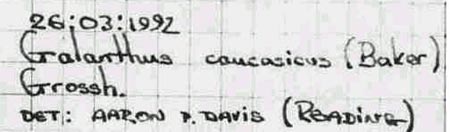 26:03:1992
Galanthus caucasicus (Baker)
Grossh.
DET: AARON P. DAVIS (READING)